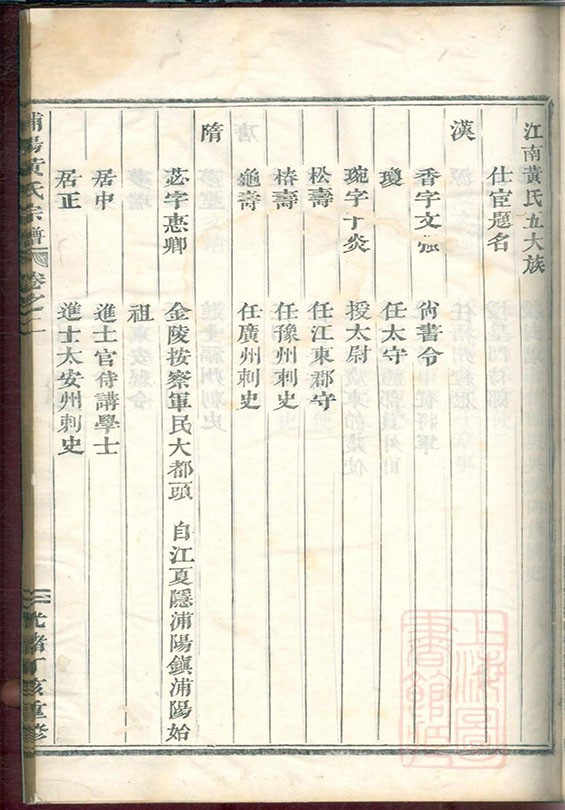 江南黃氏五大族
仕宦題名
漢
香字文強 尚書令
瓊 任太守
琬字子炎 授太尉
松壽 任江東郡守
椿壽 任豫州刺史
龜壽 任廣州刺史
隋
苾字惠卿 金陵按察軍民大都頭 自江夏隱浦陽鎮浦陽始
祖
居中 進士官侍講學士
居正 進士太安州刺史
浦陽黃氏宗譜 卷之一
光緒丁亥重修
上海圖書館藏